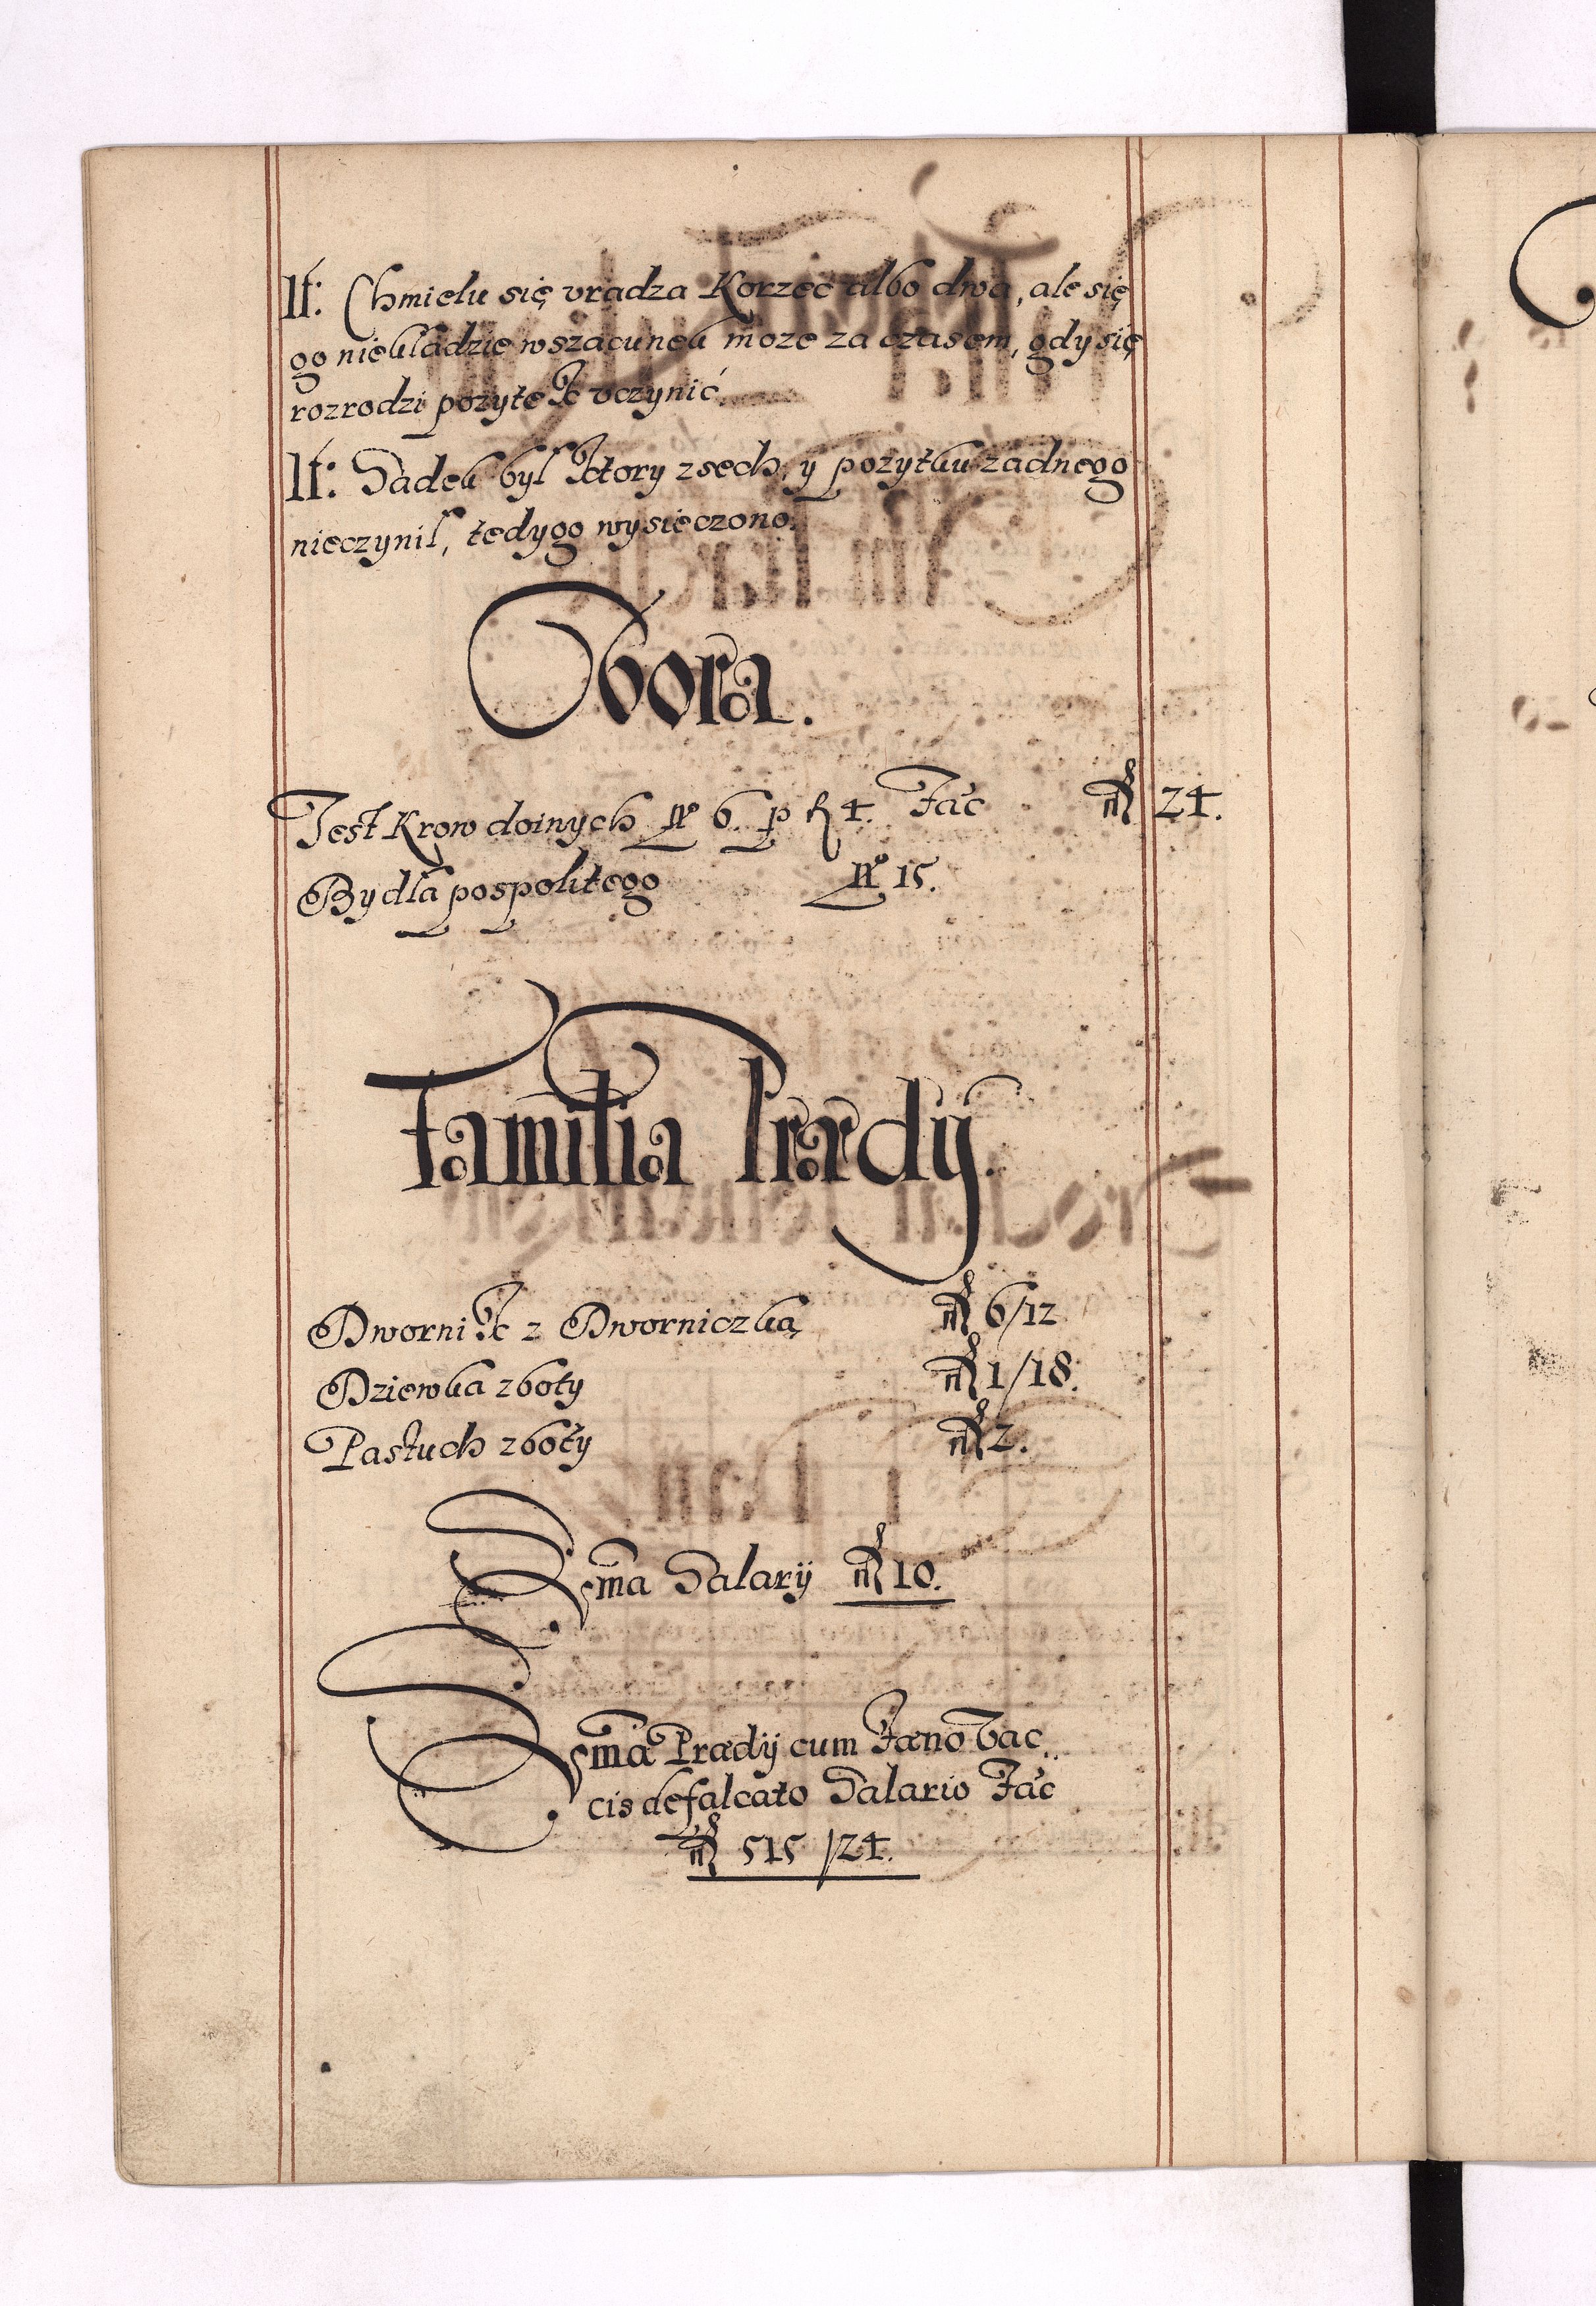 It: Chmielu się vradza Korzec albo dwa, ale się
go niekładzie w szacunek może za czasem, gdy się
rozrodzi pożytek vczynić.
It: Sadek był ktory zsech, y pożytku żadnego
nieczynił, tedy go wysieczono.
Obora.
Jest Krow doinych No 6. p fl 4. Fac 24.
Bydła pospolitego No 15.
Familia Prædij.
Dwornik z Dworniczką 6/12
Dziewka z boty 1/18.
Pastuch z boty 2.
Sm̃a Salarij 10.
Sm̃a Prædij cum Fæno Vac
cis defalcato Salario Fac
515/24.